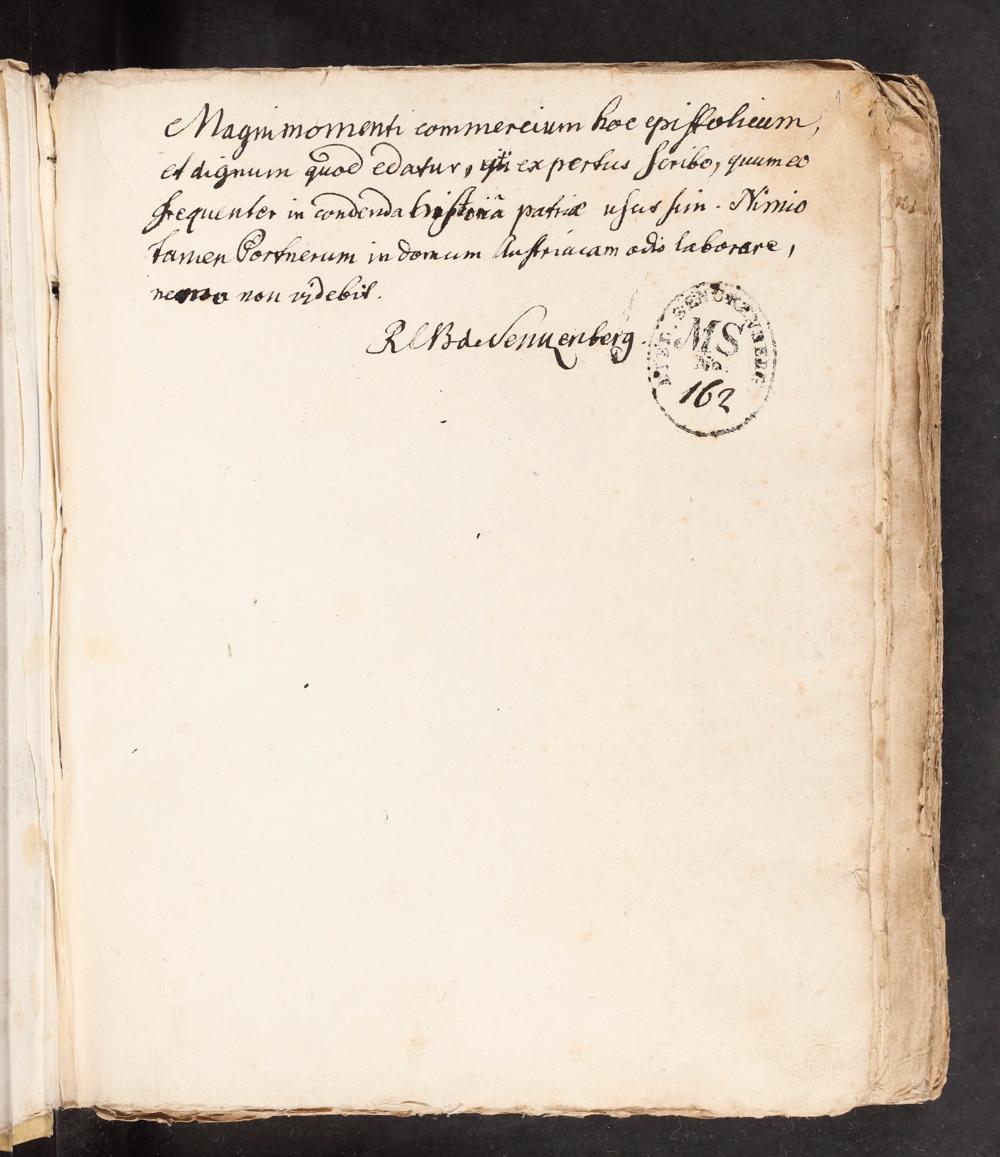 1
Magni momenti commercium hoc epistolicum,
et dignum quod edatur, uti expertus scribo, quum eo
frequenter in condenda historia patriæ usus sim. Nimio
tamen Portnerum in domum Austriacam odio laborare,
nemo non videbit.
R L B de Senckenberg.
BIBL. SENCKENBERG
MS
No.
162